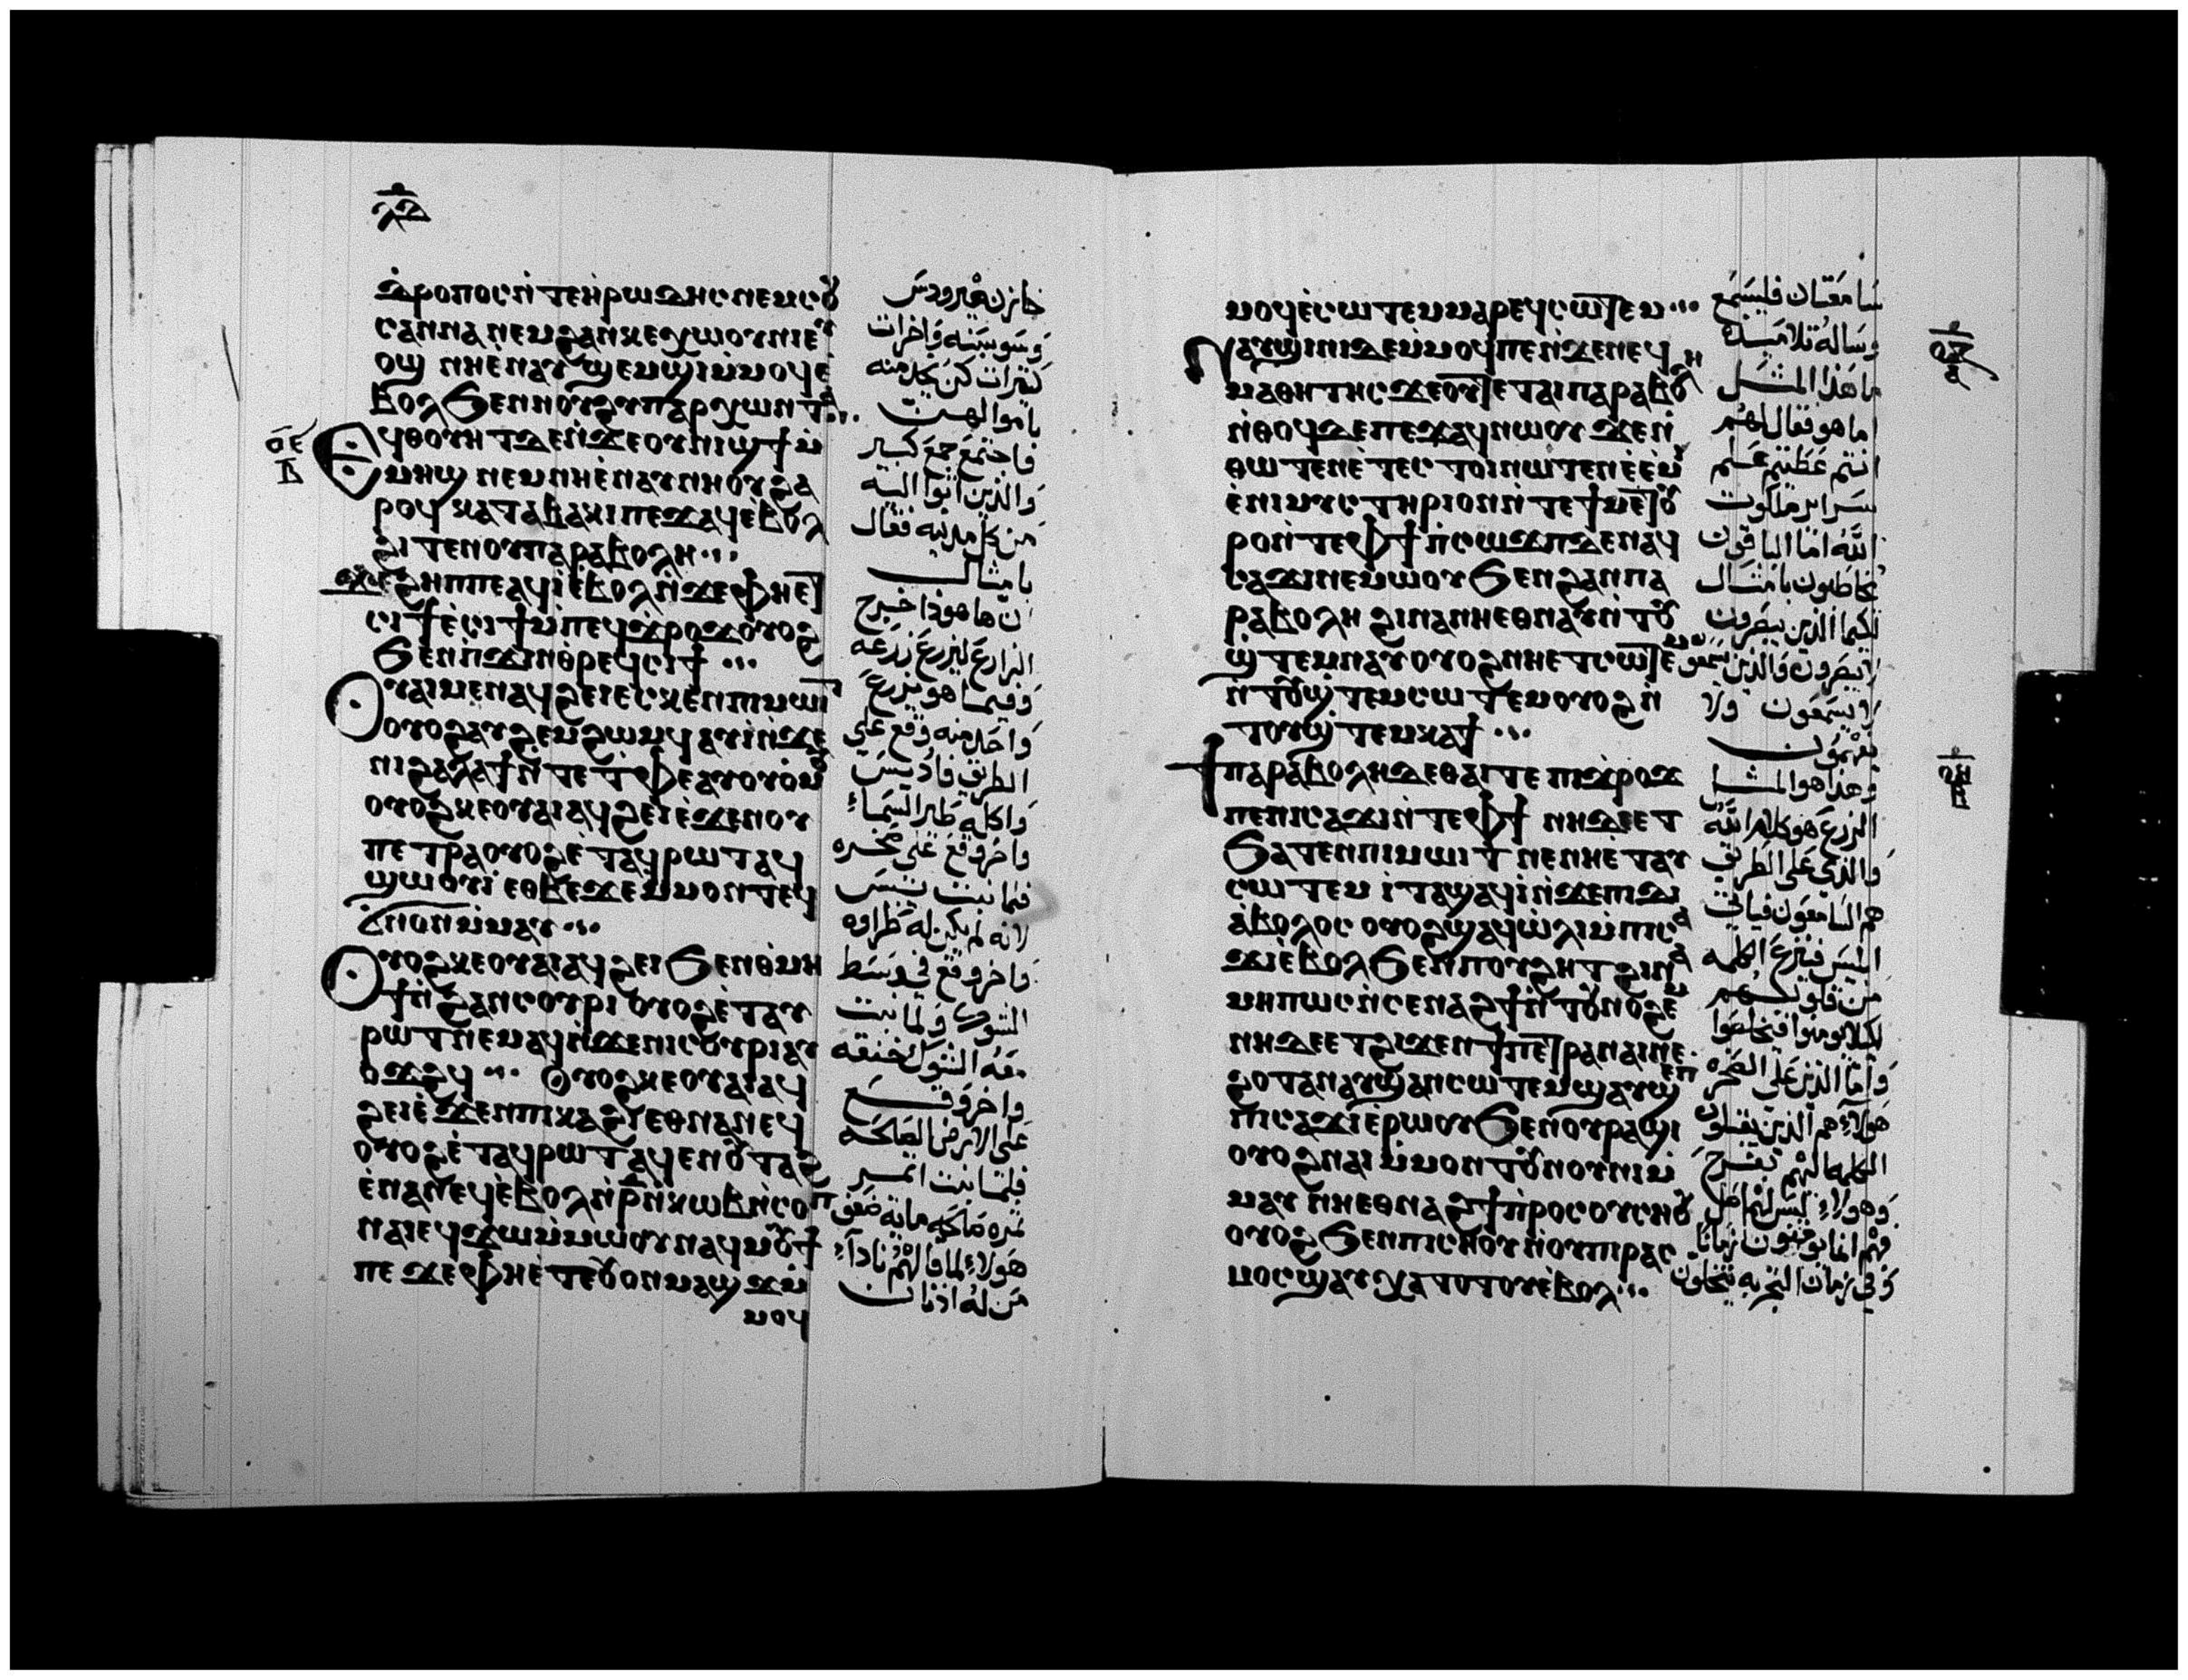 ⲗⲇ
ⲇⲣⲟⲡⲟⲥ ⲛ̀ⲧⲉ ⲏ̀ⲣⲱⲇⲏⲥ ⲛⲉⲙ ⲥⲟⲩ
ⲥⲁⲛⲛⲁ ⲛⲉⲙ ϩⲁⲛⲕⲉⲭⲱⲟⲩⲛⲓ ⲉⲩ
ⲟϣ ⲛⲏ ⲉ̀ⲛⲁⲩϣⲉⲙϣⲓ ⲙ̀ⲙⲟϥ ⲉ̀
ⲃⲟⲗ ϧⲉⲛ ⲛⲟⲩϩⲩⲡⲁⲣⲭⲱⲛⲧⲁ
ⲟⲉ
ⲃ
ⲉϥⲑⲟⲩⲏⲧ ⲇⲉ ⲛ̀ϫⲉ ⲟⲩⲛⲓϣϯ ⲙ̀
ⲙⲏϣ ⲛⲉⲙ ⲛⲏ ⲉ̀ⲛⲁⲩⲛⲏⲟⲩ ϩⲁ
ⲣⲟϥ ⲕⲁⲧⲁ ⲃⲁⲕⲓ ⲡⲉϫⲁϥ ⲉ̀ⲃⲟⲗ
ϩⲓⲧⲉⲛ ⲟⲩⲡⲁⲣⲁⲃⲟⲗⲏ
ϫⲉ ϩⲏⲡⲡⲉ ⲁϥⲓ̀ ⲉ̀ⲃⲟⲗ ⲛ̀ϫⲉ ⲫⲏ ⲉⲧ
ⲥⲓϯ ⲉ̀ⲥⲓϯ ⲙ̀ⲡⲉϥϫⲣⲟϫ ⲟⲩⲟϩ
ϧⲉⲛ ⲡ̀ϫⲓⲛⲑⲣⲉϥⲥⲓϯ
ⲟⲩⲁⲓ ⲙⲉⲛ ⲁϥϩⲉⲓ ⲉ̀ⲥⲕⲉⲛ ⲡⲓⲙⲱⲓⲧ
ⲟⲩⲟϩ ⲁⲩϩⲉⲙϩⲱⲙϥ ⲁⲩⲓ̀ ⲛ̀ϫⲉ
ⲛⲓϩⲁⲗⲁϯ ⲛ̀ⲧⲉ ⲧ̀ⲫⲉ ⲁⲩⲟⲩⲟⲙϥ
ⲟⲩⲟϩ ⲕⲉⲟⲩⲁⲓ ⲁϥϩⲉⲓ ⲉ̀ϫⲉⲛ ⲟⲩ
ⲡⲉⲧⲣⲁ ⲟⲩⲟϩ ⲉ̀ⲧⲁϥⲣⲱⲧ ⲁϥ
ϣⲱⲟⲩⲓ̀ ⲉⲑⲃⲉ ϫⲉ ⲙ̀ⲙⲟⲛⲧⲉϥ
ⲛⲟⲛ ⲙ̀ⲙⲁⲩ
ⲟⲩⲟϩ ⲕⲉⲟⲩⲁⲓ ⲁϥϩⲉⲓ ϧⲉⲛ ⲑ̀ⲙⲏ
ϯ ⲛ̀ϩⲁⲛⲥⲟⲩⲣⲓ ⲟⲩⲟϩ ⲉ̀ⲧⲁⲩ
ⲣⲱⲧ ⲛⲉⲙⲁϥ ⲛ̀ϫⲉ ⲛⲓⲥⲟⲩⲣⲓ ⲁⲩ
ⲟϫϩϥ ⲟⲩⲟϩ ⲕⲉⲟⲩⲁⲓ ⲁϥ
ϩⲉⲓ ⲉ̀ϫⲉⲛ ⲡⲓⲕⲁϩⲓ ⲉⲑⲛⲁⲛⲉϥ
ⲟⲩⲟϩ ⲉ̀ⲧⲁϥⲣⲱⲧ ⲁϥⲉⲛ ⲟⲩⲧⲁϩ
ⲉ̀ⲛⲁⲛⲉϥ ⲉ̀ⲃⲟⲗ ⲛ̀ⲣ̅ ⲛ̀ⲕⲱⲃ ⲛ̀ⲥⲟⲡ
ⲛⲁⲓ ⲉϥϫⲱ ⲙ̀ⲙⲱⲟⲩ ⲛⲁϥⲙⲟⲩϯ
ⲡⲉ ϫⲉ ⲫⲏ ⲉ̀ⲧⲉ ⲟⲩⲟⲛ ⲙⲁϣϫ ⲙ̀
ⲙⲟϥ
خازن هيرودس
وسوسنه واخرات
كثيرات كن يخدمنه
باموالهن
فاجتمع جمع كبير
والذين اتوا اليه
من كل مدينه فقال
بامثال
ان هاهوذا خرج
الزارع ليزرع زرعه
وفيما هو يزرع
واحد منه وقع على
الطريق فاديس
واكله طير السماء
واخر وقع على صخره
فلما نبت يبس
لانه لم يكن له طراوه
واخر وقع في وسط
الشوك ولما نبت
معه الشوك خنقه
واخر وقع
على الارض الصالحه
فلما نبت اثمر
ثمره صالحه مايه ضعف
هولاء لما قالهم نادا
من له اذنان
ⲙⲟϥ ⲉ̀ⲥⲱⲧⲉⲙ ⲙⲁⲣⲉϥⲥⲱⲧⲉⲙ
ⲛⲁⲩϣⲓⲛⲓ ⲇⲉ ⲙ̀ⲙⲟϥ ⲡⲉ ⲛ̀ϫⲉ ⲛⲉϥ
ⲙⲁⲑⲏⲧⲏⲥ ϫⲉ ⲟⲩ ⲧⲉ ⲧⲁⲓⲡⲁⲣⲁⲃⲟⲗⲏ
ⲛ̀ⲑⲟϥ ⲇⲉ ⲡⲉϫⲁϥ ⲛⲱⲟⲩ ϫⲉ ⲛ̀
ⲑⲱⲧⲉⲛ ⲉ̀ⲧⲉⲥⲧⲟⲓ ⲛⲱⲧⲉⲛ ⲉ̀ⲉ̀ⲙⲓ
ⲉ̀ⲛⲓⲙⲩⲥⲧⲏⲣⲓⲟⲛ ⲛ̀ⲧⲉ ϯⲙⲉⲧⲟⲩ
ⲣⲟ ⲛ̀ⲧⲉ ⲫϯ ⲡ̀ⲥⲱϫⲡ ⲇⲉ ⲛⲁϥ
ⲥⲁϫⲓ ⲛⲉⲙⲱⲟⲩ ϧⲉⲛ ϩⲁⲛⲡⲁ
ⲣⲁⲃⲟⲗⲏ ϩⲓⲛⲁ ⲛⲏ ⲉⲑⲛⲁⲩ ⲛ̀ⲧⲟⲩ
ϣ̀ⲧⲉⲙⲛⲁⲩ ⲟⲩⲟϩ ⲛⲏ ⲉⲧⲥⲱⲧⲉⲙ
ⲛ̀ⲧⲟⲩϣ̀ⲧⲉⲙⲥⲱⲧⲉⲙ ⲟⲩⲟϩ ⲛ̀
ⲧⲟⲩϣ̀ⲧⲉⲙⲕⲁϯ
ϯⲡⲁⲣⲁⲃⲟⲗⲏ ⲇⲉ ⲑⲁⲓ ⲧⲉ ⲡⲓϫⲣⲟϫ
ⲡⲉ ⲡⲓⲥⲁϫⲓ ⲛ̀ⲧⲉ ⲫϯ ⲛⲏ ⲇⲉ ⲉⲧ
ϧⲁⲧⲉⲛ ⲡⲓⲙⲱⲓⲧ ⲛⲉ ⲛⲏ ⲉ̀ⲧⲁⲩ
ⲥⲱⲧⲉⲙ ⲓⲧⲁ ϣⲁϥⲓ̀ ⲛ̀ϫⲉ ⲡⲓⲇⲓ
ⲁ̀ⲃⲟⲗⲟⲥ ⲟⲩⲟϩ ϣⲁϥⲱ̀ⲗⲓ ⲙ̀ⲡⲓⲥⲁ
ϫⲓ ⲉ̀ⲃⲟⲗ ϧⲉⲛ ⲡⲟⲩϩⲏⲧ ϩⲓⲛⲁ
ⲙⲏⲡⲱⲥ ⲛ̀ⲥⲉⲛⲁϩϯ ⲛ̀ⲧⲟⲩⲛⲟϩⲉⲙ
ⲛⲏ ⲇⲉ ⲉⲧϩⲓϫⲉⲛ ϯⲡⲉⲧⲣⲁ ⲛⲁⲓ ⲛⲉ
ϩⲟⲧⲁⲛ ⲁⲩϣⲁⲛⲥⲱⲧⲉⲙ ϣⲁⲩϣⲉⲡ
ⲡⲓⲥⲁϫⲓ ⲉ̀ⲣⲱⲟⲩ ϧⲉⲛ ⲟⲩⲣⲁϣⲓ
ⲟⲩⲟϩ ⲛⲁⲓ ⲙ̀ⲙⲟⲛⲧⲟⲩ ⲛⲟⲩⲛⲓ ⲙ̀
ⲙⲁⲩ ⲛⲏ ⲉⲑⲛⲁϩϯ ⲡⲣⲟⲥ ⲟⲩⲥⲏⲟⲩ
ⲟⲩⲟϩ ϧⲉⲛ ⲡ̀ⲥⲏⲟⲩ ⲛ̀ⲟⲩⲡⲓⲣⲁⲥ
ⲙⲟⲥ ϣⲁⲩⲭⲁⲧⲟⲧⲟⲩ ⲉ̀ⲃⲟⲗ
سامعتان فليسمع
وساله تلاميذه
ما هذا المثل
اما هو فقال لهم
انتم عطيتم علم
سراير ملكوت
الله اما الباقون
يخاطبون بامثال
لكيما الذين يبصرون
لا يبصرون والذين يسمعون
لا يسمعون ولا
يفهمون
وهذا هو المثل
الزرع هو كلام الله
والذي على الطريق
هم السامعون فياتي
ابليس فينزع الكلمه
من قلوبهم
لكيلا يومنوا فيخلصوا
واما الذين على الصخره
هولاء هم الذين يقبلون
الكلمه اليهم بفرح
وهولاء ليس لهم اصل
فهم انما يومنون زمانا
وفي زمان التجربه يتخلون
ⲟⲏ
ⲃ